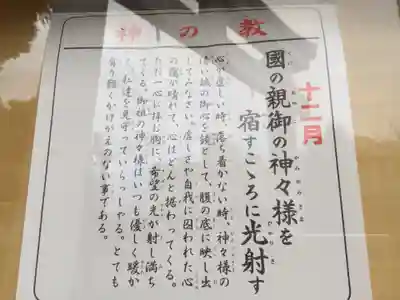 神の教
十二月
國の親御の神々様を
宿すこゝろに光射す
心が虚しい時、落ち着かない時、神々様の
清い鏡の御心を鏡として、腹の底に映し出
してみなさい。虚しさや自我に囚われた心
の靄が晴れて、心はどんと据わってくる。
ただ一心に拝む胸に、希望の光が射し満ち
てくる。御祖の神々様はいつも優しく暖か
く、私達を見守っていらっしゃる。とても
有り難くかけがえのない事である。